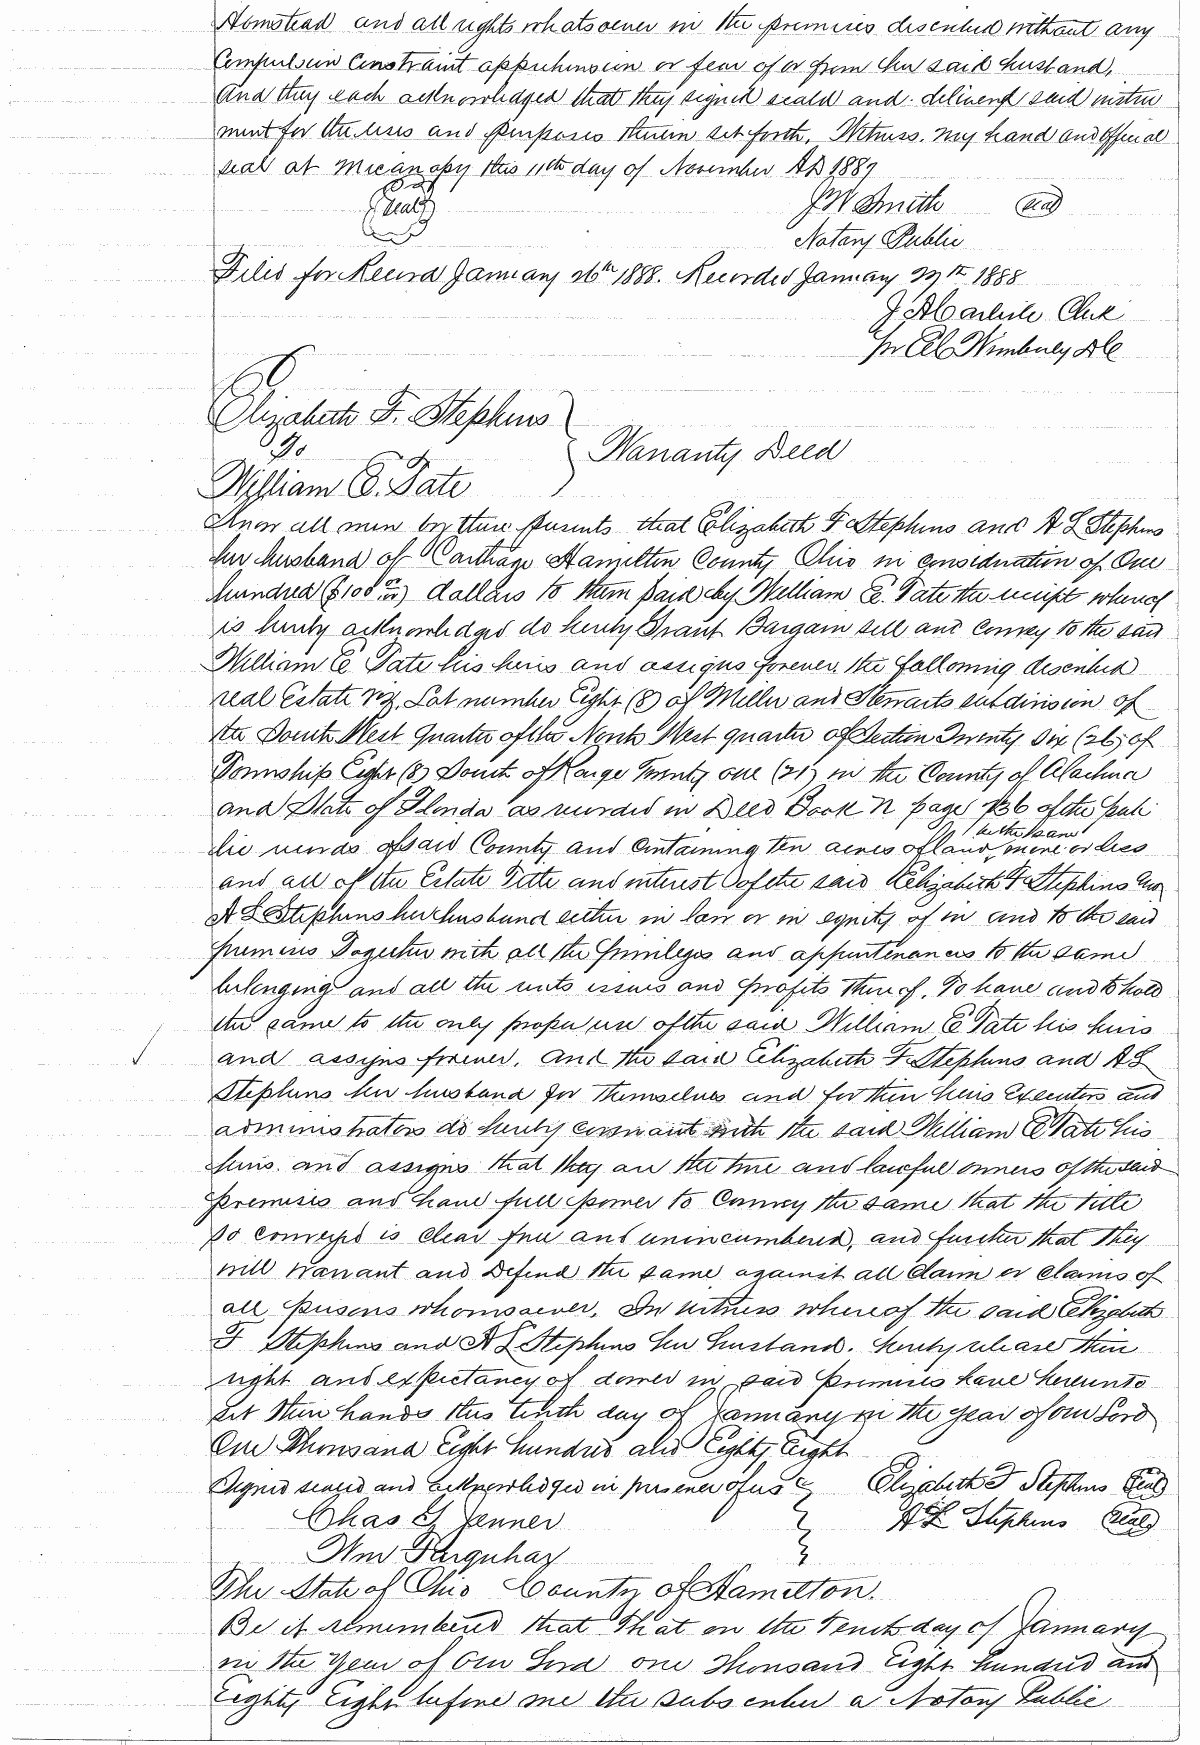 Homstead and all rights whatsoever in the premises described without any
Compulsion Constraint apprehension or fear of or from her said husband,
And they each acknowledged that they signed seald and deliverd said instru
ment for the uses and purposes therein set forth. Witness. my hand and official
seal at Micanopy this 11th day of November AD 1887
(Seal) J W Smith (seal)
Notary Public
Filed for Record January 26th 1888. Recorded January 27th 1888
J A Carlisle Clerk
pr Wimberly DC
Elizabeth F. Stephens
To Warranty Deed
William E. Tate
Know all men by these presents that Elizabeth F Stephens and A L Stephens
her husband of Carthage Hamilton County Ohio in consideration of One
hundred ($100 00/100) dollars to them paid by William E. Tate the receipt whereof
is hereby acknowledged do hereby Grant Bargain sell and convey to the said
William E Tate his heirs and assigns forever. the following described
real Estate viz. Lot number Eight (8) of Miller and Stewarts subdivision of
the South West Quarter of the North West quarter of Section Twenty six (26) of
Township Eight (8) South of Range Twenty one (21) in the County of Alachua
and State of Florida as recorded in Deed Book N page 736 of the pub
be the same
lic records of said County and containing ten acres of land, more or less
and all of the Estate Title and interest of the said Elizabeth F Stephens and
A L Stephens her husband either in law or in equity of in and to the said
premises Together with all the privileges and appurtenances to the same
belonging and all the rents issues and profits thereof. To have and to hold
the same to the only proper use of the said William E Tate his heirs
and assigns forever. And the said Elizabeth F Stephens and A L
Stephens her husband for themselves and for their heirs Executors and
administrators do hereby covenant with the said William E Tate his
heirs. and assigns that they are the true and lawful owners of the said
premises and have full power to convey the same that the title
so conveyed is clear free and unincumbered, and further that they
will warrant and Defend the same against all claim or claims of
all persons whomsoever. In witness whereof the said Elizabeth
F Stephens and A L Stephens her husband. hereby release their
right and expectancy of dower in said premises have hereunto
set their hands this tenth day of January in the year of our Lord
One Thousand Eight hundred and Eighty Eight
Signed sealed and acknowledged in presence of us Elizabeth F Stephens (Seal)
Chas G Jenner A L Stephens (Seal)
Wm Farquhar
The State of Ohio County of Hamilton.
Be it remembered that That on the Tenth day of January
in the Year of Our Lord one Thousand Eight hundred and
Eighty Eight before me the subscriber a Notary Public